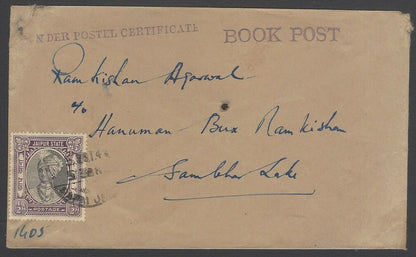 UNDER POSTEL CERTIFICATE
BOOK POST
Ram Kishan Agarwal
c/o
Hanuman Bux Ram Kishan
Sambhar Lake
JAIPUR STATE
POSTAGE